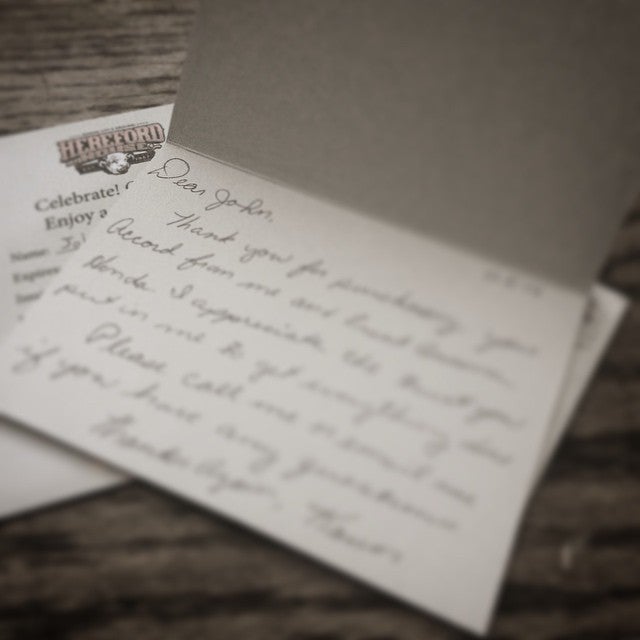 HEREFORD
Celebrate!
Enjoy a
Name:
Dear John,
Thank you for purchasing your
Accord from me and
Honda. I appreciate the trust you
put in me to get everything
Please call me or email me
if you have any questions
Thanks Again,